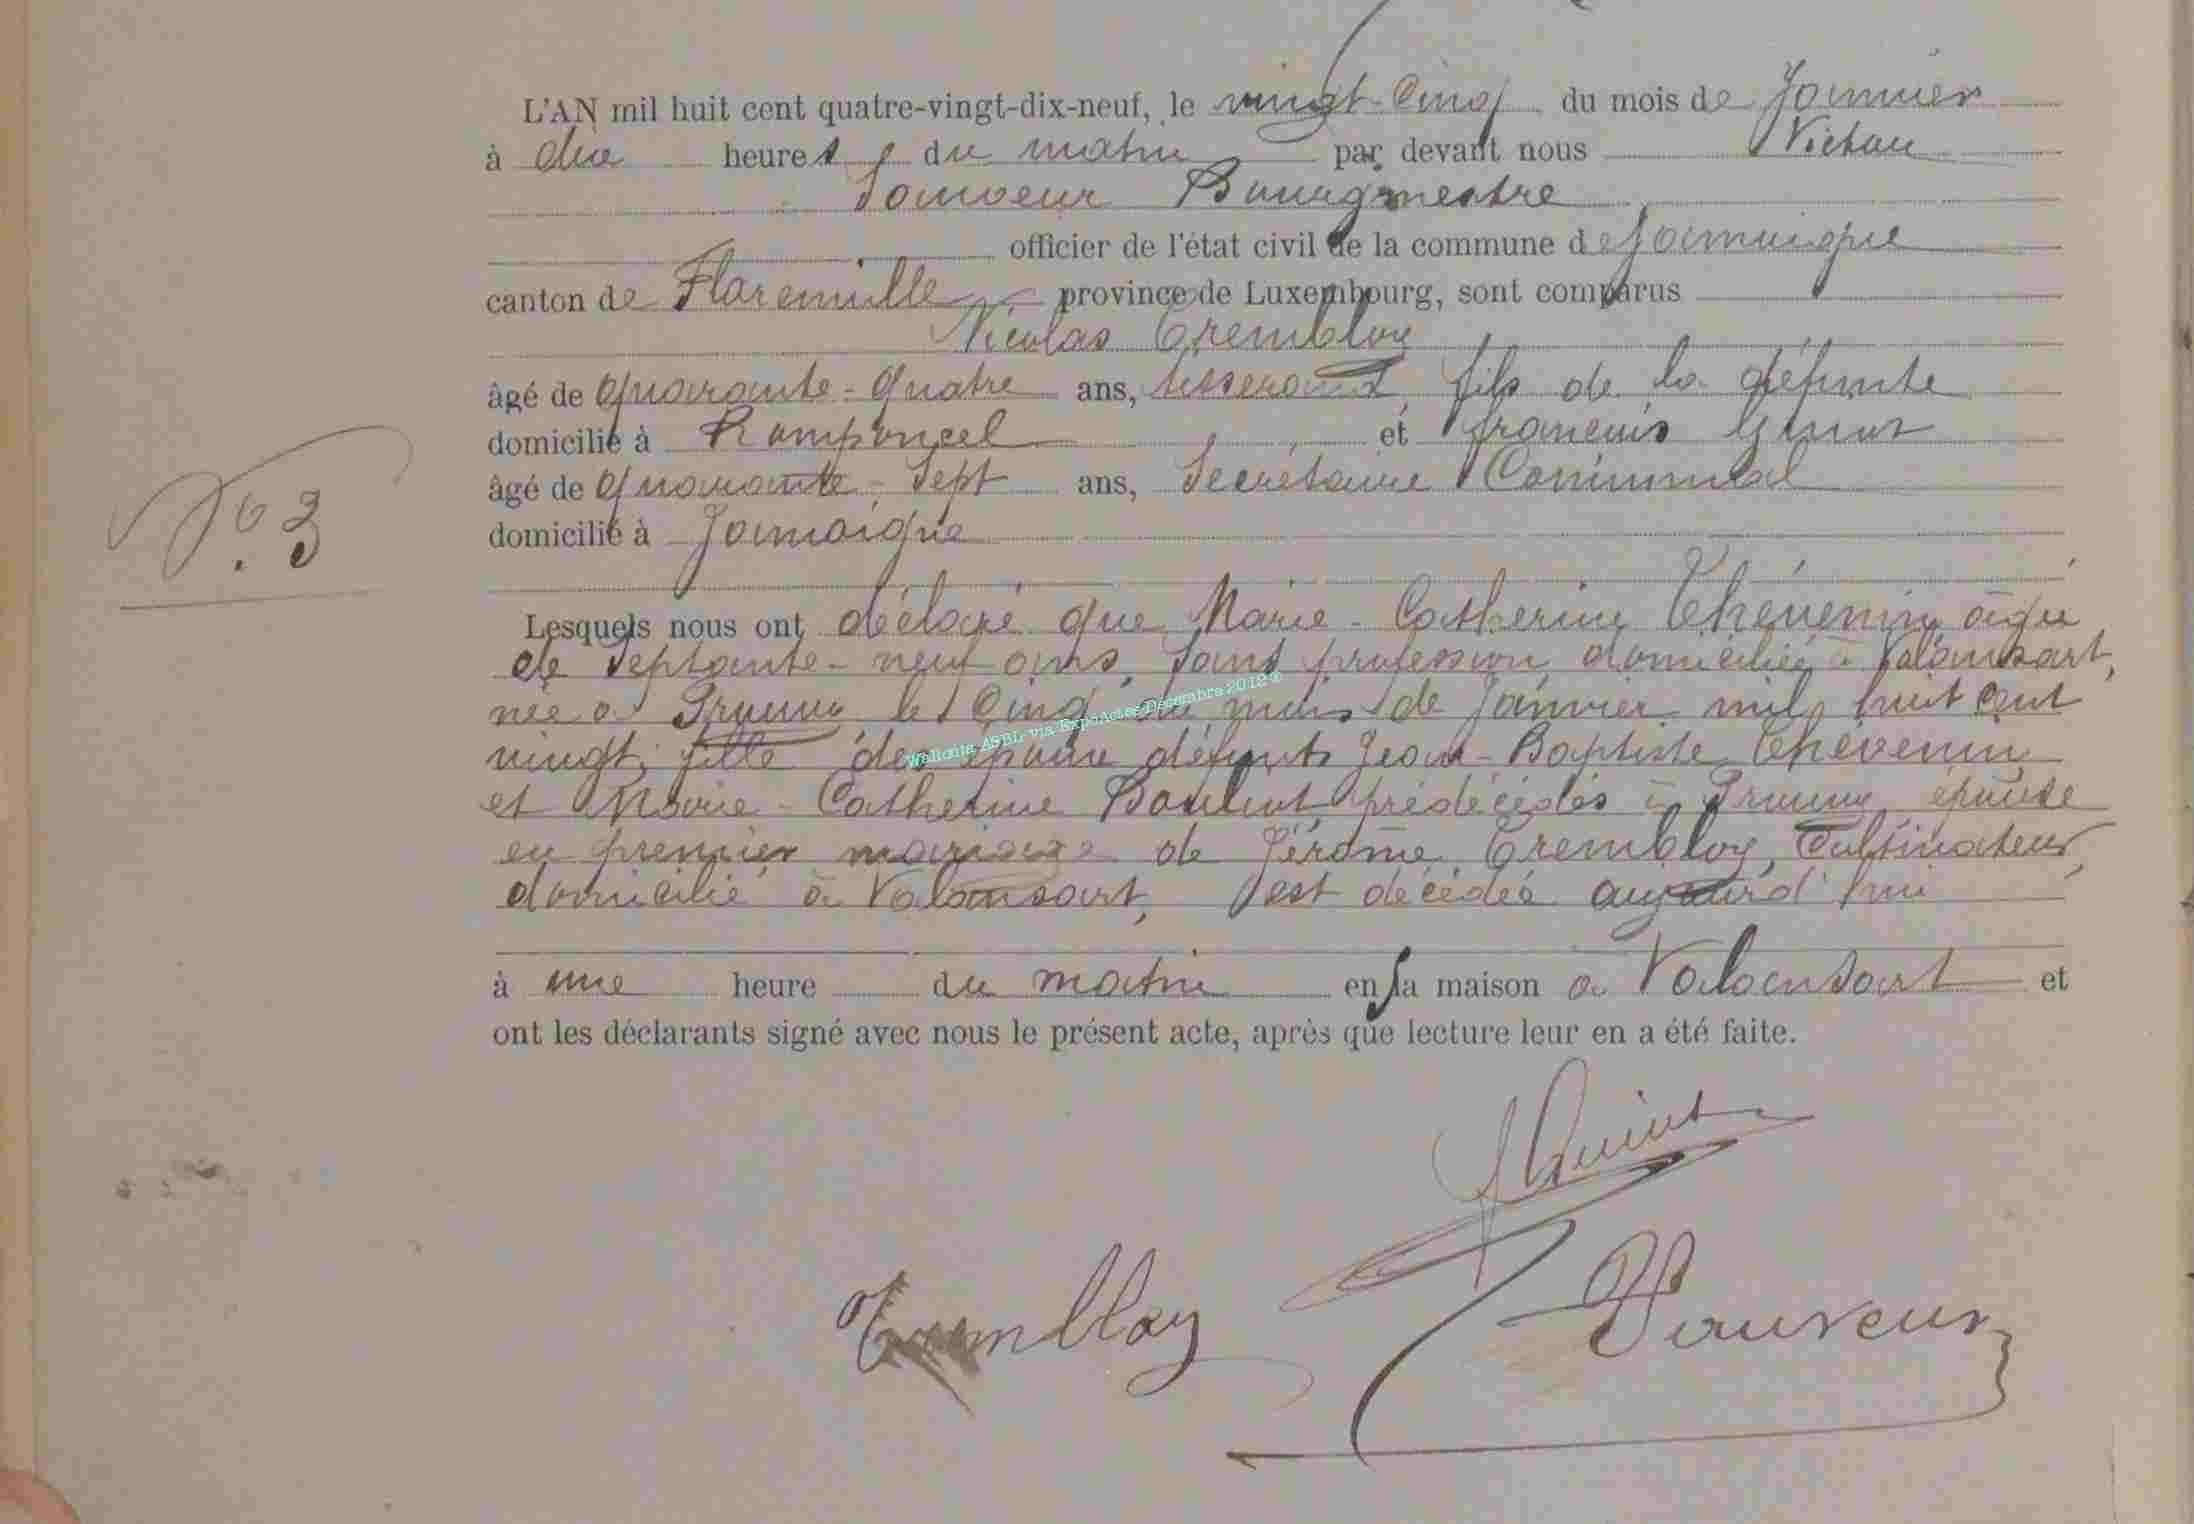 L'AN mil huit cent quatre-vingt-dix-neuf, le vingt-Cinq du mois de Janvier
à dix heures du matin par devant nous Victor
Sauveur Bourgmestre
officier de l'état civil de la commune de Jamoigne
canton de Florenville province de Luxembourg, sont comparus
Nicolas Trembloy
âgé de quarante-quatre ans, tisserand, fils de la défunte
domicilié à Romponcel et françois
âgé de quarante-Sept ans, Secrétaire Communal
domicilié à Jamoigne
N° 3
Lesquels nous ont déclaré que Marie-Catherine Thévenin âgée
de Septante-neuf ans, Sans profession, domiciliée à Valansart,
née à Prouvy le Cinq du mois de Janvier mil huit cent
vingt, fille des époux défunts Jean-Baptiste Thévenin
et Marie-Catherine prédécédés à Prouvy, épouse
en premier mariage de Jérôme Trembloy, Cultivateur,
domicilié à Valansart, est décédée aujourd'hui
à une heure du matin en sa maison à Valansart et
ont les déclarants signé avec nous le présent acte, après que lecture leur en a été faite.
Trembloy
Sauveur
Wallonia ASBL via ExpoActes Décembre 2012 ©